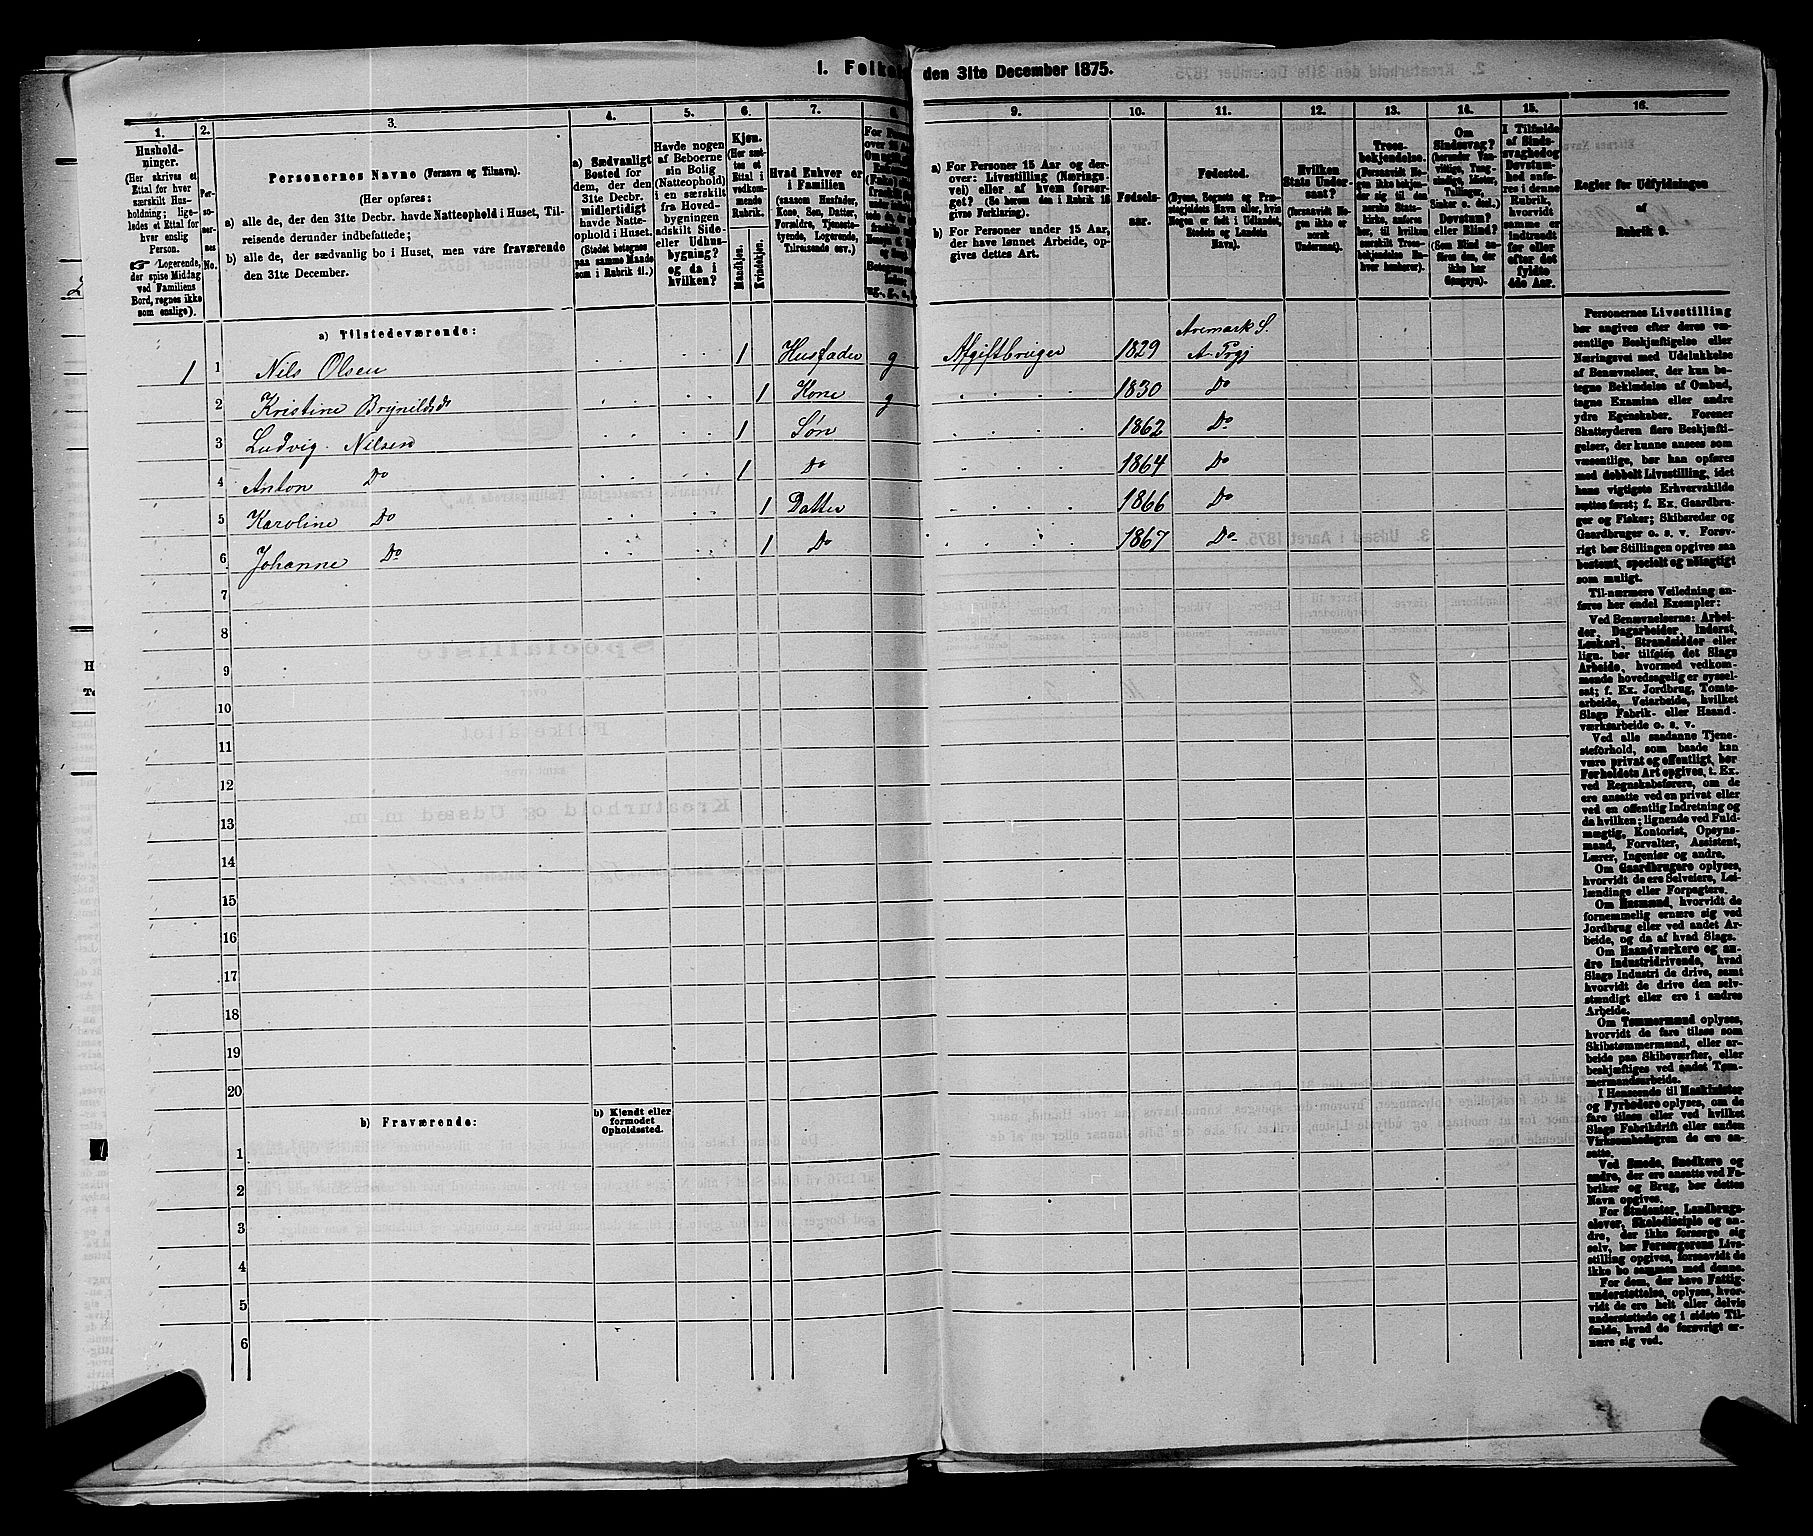 1. Folke den 31te December 1875.
1. 2. 3. 4. 5. 6. 7. 8. 9. 10. 11. 12. 13. 14. 15. 16.
Hushold-
ninger.
(Her skrives et
Ettal for hver
særskilt Hus-
holdning; lige-
ledes et Ettal for
hver enslig
Person.
☞ Logerende,
der spise Middag
ved Familiens
Bord, regnes ikke
som enslige).
Per-
so-
ner-
nes
No.
Personernes Navne (Fornavn og Tilnavn).
(Her opføres:
a) alle de, der den 31te Decbr. havde Natteophold i Huset, Til-
reisende derunder indbefattede;
b) alle de, der sædvanlig bo i Huset, men vare fraværende
den 31te December.
a) Sædvanligt
Bosted for
dem, der den
31te Decbr.
midlertidigt
havde Natte-
ophold i Huset.
(Stedet betegnes
paa samme Maade
som i Rubrik 11.)
Havde nogen
af Beboerne
sin Bolig
(Natteophold)
i en særskilt
fra Hoved-
bygningen
adskilt Side-
eller Udhus-
bygning?
og da i
hvilken?
Kjøn.
(Her sæt-
tes et
Ettal i
vedkom-
mende
Rubrik.
Mandkjøn.
Kvindekjøn.
Hvad Enhver er
i Familien
(saasom Husfader,
Kone, Søn, Datter,
Forældre, Tjeneste-
tyende, Logerende,
Tilreisende osv.)
a) For Personer 15 Aar og der-
over: Livsstilling (Nærings-
vei) eller af hvem forsør-
get? (Se herom den i Rubrik 16
givne Forklaring).
b) For Personer under 15 Aar,
der have lønnet Arbeide, op-
gives dettes Art.
Fødsels-
aar.
Fødested.
(Byens, Sognets og Præ-
stegjeldets Navn eller, hvis
Nogen er født i Udlandet,
Stedets og Landets
Navn).
Hvilken
Stats Under-
saat?
(forsaavidt No-
gen ikke er
norsk
Undersaat).
Troes-
bekjendelse.
(Forsaavidt No-
gen ikke bekjen-
der sig til den
norske Stats-
kirke, anføres
her, til hvilken
særskilt Troes-
bekjendelse En-
hver henhører).
Om
Sindssvag?
(herunder Van-
vittige, Tung-
sindige, Idioter,
Tullinger,
Sinker o. desl.)
Døvstum?
eller Blind?
(Som Blind an-
føres den, der
ikke har
Gangsyn).
I Tilfælde
af Sinds-
svaghed og
Døvstum-
hed anfø-
res i denne
Rubrik,
hvorvidt
samme er
indtraadt
før eller
efter det
fyldte
4de Aar.
Regler for Udfyldningen
af
Rubrik 9.
a) Tilstedeværende:
Aremark S.
1 1 Nils Olsen 1 Husfader g Afgiftbruger 1829 A. Prgj
2 Kristine Brynildsd 1 Kone g 1830 Do
3 Ludvig Nilsen 1 Søn 1862 Do
4 Anton Do 1 Do 1864 Do
5 Karoline Do 1 Datter 1866 Do
6 Johanne Do 1 Do 1867 Do
7
8
9
10
11
12
13
14
15
16
17
18
19
20
b) Fraværende:
b) Kjendt eller
formodet
Opholdssted.
1
2
3
4
5
6
Personernes Livsstilling
bør angives efter deres væ-
sentlige Beskjæftigelse eller
Næringsvei med Udelukkelse
af Benævnelser, der kun be-
tegne Beklædelse af Ombud,
tagne Examina eller andre
ydre Egenskaber. Forener
Skatteyderen flere Beskjæfti-
gelser, der kunne ansees som
væsentlige, bør han opføres
med dobbelt Livsstilling, idet
hans vigtigste Erhvervskilde
sættes først; f. Ex. Gaardbru-
ger og Fisker; Skibsreder og
Gaardbruger o. s. v. Forøv-
rigt bør Stillingen opgives saa
bestemt, specielt og nøiagtigt
som muligt.
Til nærmere Veiledning an-
føres her endel Exempler:
Ved Benævnelserne: Arbei-
der, Dagarbeider, Inderst,
Løskarl, Strandsidder eller
lign. bør tilføies det Slags
Arbeide, hvormed vedkom-
mende hovedsagelig er syssel-
sat; f. Ex. Jordbrug, Tomte-
arbeide, Veiarbeide, hvilket
Slags Fabrik- eller Haand-
værksarbeide o. s. v.
Ved alle saadanne Tjene-
steforhold, som baade kan
være privat og offentligt, bør
Forholdets Art opgives, t. Ex.
ved Regnskabsførere, om de
ere ansatte ved en privat eller
ved en offentlig Indretning og
da hvilken; lignende ved Fuld-
mægtig, Kontorist, Opsyns-
mand, Forvalter, Assistent,
Lærer, Ingeniør og andre.
Om Gaardbrugere oplyses,
hvorvidt de ere Selveiere, Lei-
lændinge eller Forpagtere.
Om Husmænd, hvorvidt de
fornemmelig ernære sig ved
Jordbrug eller ved andet Ar-
beide, og da af hvad Slags.
Om Haandværkere og an-
dre Industridrivende, hvad
Slags Industri de drive, samt
hvorvidt de drive den selv-
stændigt eller ere i andres
Arbeide.
Om Tømmermænd oplyses,
hvorvidt de fare tilsøs som
Skibstømmermænd, eller ar-
beide paa Skibsværfter, eller
beskjæftiges ved andet Tøm-
mermandsarbeide.
I Henseende til Maskinister
og Fyrbødere oplyses, om de
fare tilsøs eller ved hvilket
Slags Fabrikdrift eller anden
Virksomhedsgren de ere an-
satte.
Ved Smede, Snedkere og
andre, der ere ansatte ved Fa-
briker og Brug, bør dettes
Navn opgives.
For Studenter, Landbrugs-
elever, Skoledisciple og an-
dre, der ikke forsørge sig
selv, bør Forsørgerens Livs-
stilling opgives, forsaavidt de
ikke bo sammen med denne.
For dem, der have Fattig-
understøttelse, oplyses, hvor-
vidt de ere helt eller delvis
understøttede og i sidste Til-
fælde, hvad de forøvrigt er-
nære sig ved.